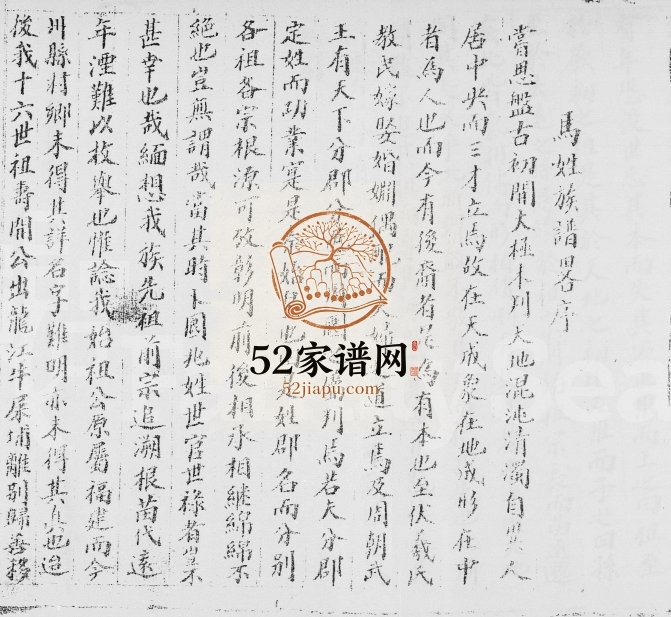 馬姓族譜畧序
嘗思盤古初開太極未判天地混沌清濁自興人
居中央而三才立焉故在天成象在地成形在中
者為人也而今有後裔者 為有本也至伏羲氏
教民嫁娶婚姻偶 夫婦 道立焉及周朝武
王有天下分郡 判焉若夫分郡
定姓而功業寔是 姓郡名而分別
各祖各宗根源可攷彰明前後相承相継綿綿不
絕也豈無謂哉當其時卜國九姓世官世祿者豈不
甚幸也哉緬想我族先祖前宗追溯根茵代遠
年湮難以枚舉也惟諗我始祖公原屬福建而今
州縣村鄉未得其詳名字難明亦未得其真也迨
後我十六世祖壽開公出龍江牛屎埔離別歸善
52家谱网
52jiapu.com